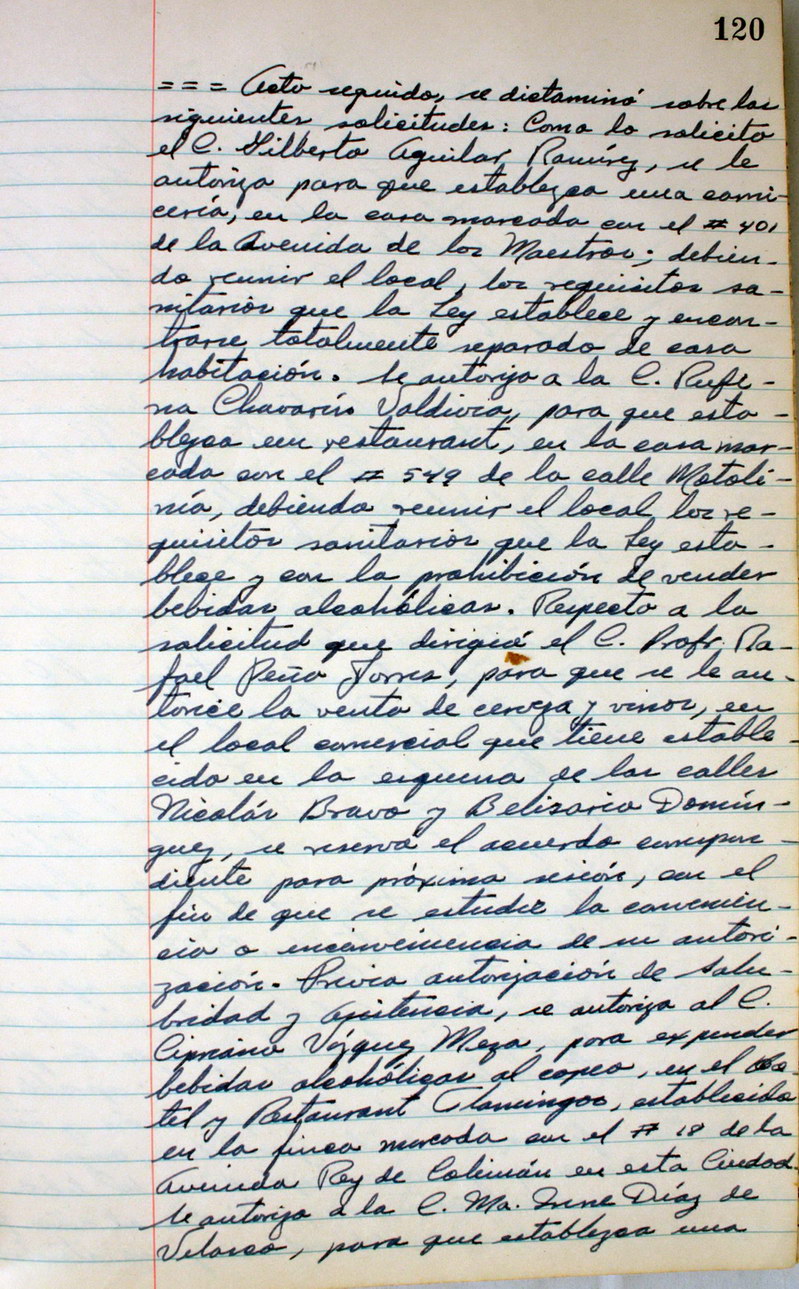 120
= = = Acto seguido, se dictaminó sobre las
siguientes solicitudes: Como lo solicita
el C. Gilberto Aguilar Ramírez, se le
autoriza para que establezca una carni-
cería, en la casa marcada con el # 401
de la Avenida de los Maestros; debien-
do reunir el local, los requisitos sa-
nitarios que la Ley establece y encon-
trarse totalmente separado de casa
habitación. Se autoriza a la C. Rufi-
na Chavarín Valdivia, para que esta-
blezca un restaurant, en la casa mar-
cada con el # 549 de la calle Motoli-
nía, debiendo reunir el local los re-
quisitos sanitarios que la Ley esta-
blece y con la prohibición de vender
bebidas alcohólicas. Respecto a la
solicitud que dirigió el C. Profr. Ra-
fael Peña Torres, para que se le au-
torice la venta de cerveza y vinos, en
el local comercial que tiene estable-
cido en la esquina de las calles
Nicolás Bravo y Belisario Domín-
guez, se reserva el acuerdo correspon-
diente para próxima sesión, con el
fin de que se estudie la convenien-
cia o inconveniencia de su autori-
zación. Previa autorización de Salu-
bridad y Asistencia, se autoriza al C.
Cipriano Vázquez Meza, para expender
bebidas alcohólicas al copeo, en el Ho-
tel y Restaurant Flamingos, establecido
en la finca marcada con el # 18 de la
Avenida Rey de Colimán en esta Ciudad.
Se autoriza a la C. Ma. Irene Díaz de
Velasco, para que establezca una